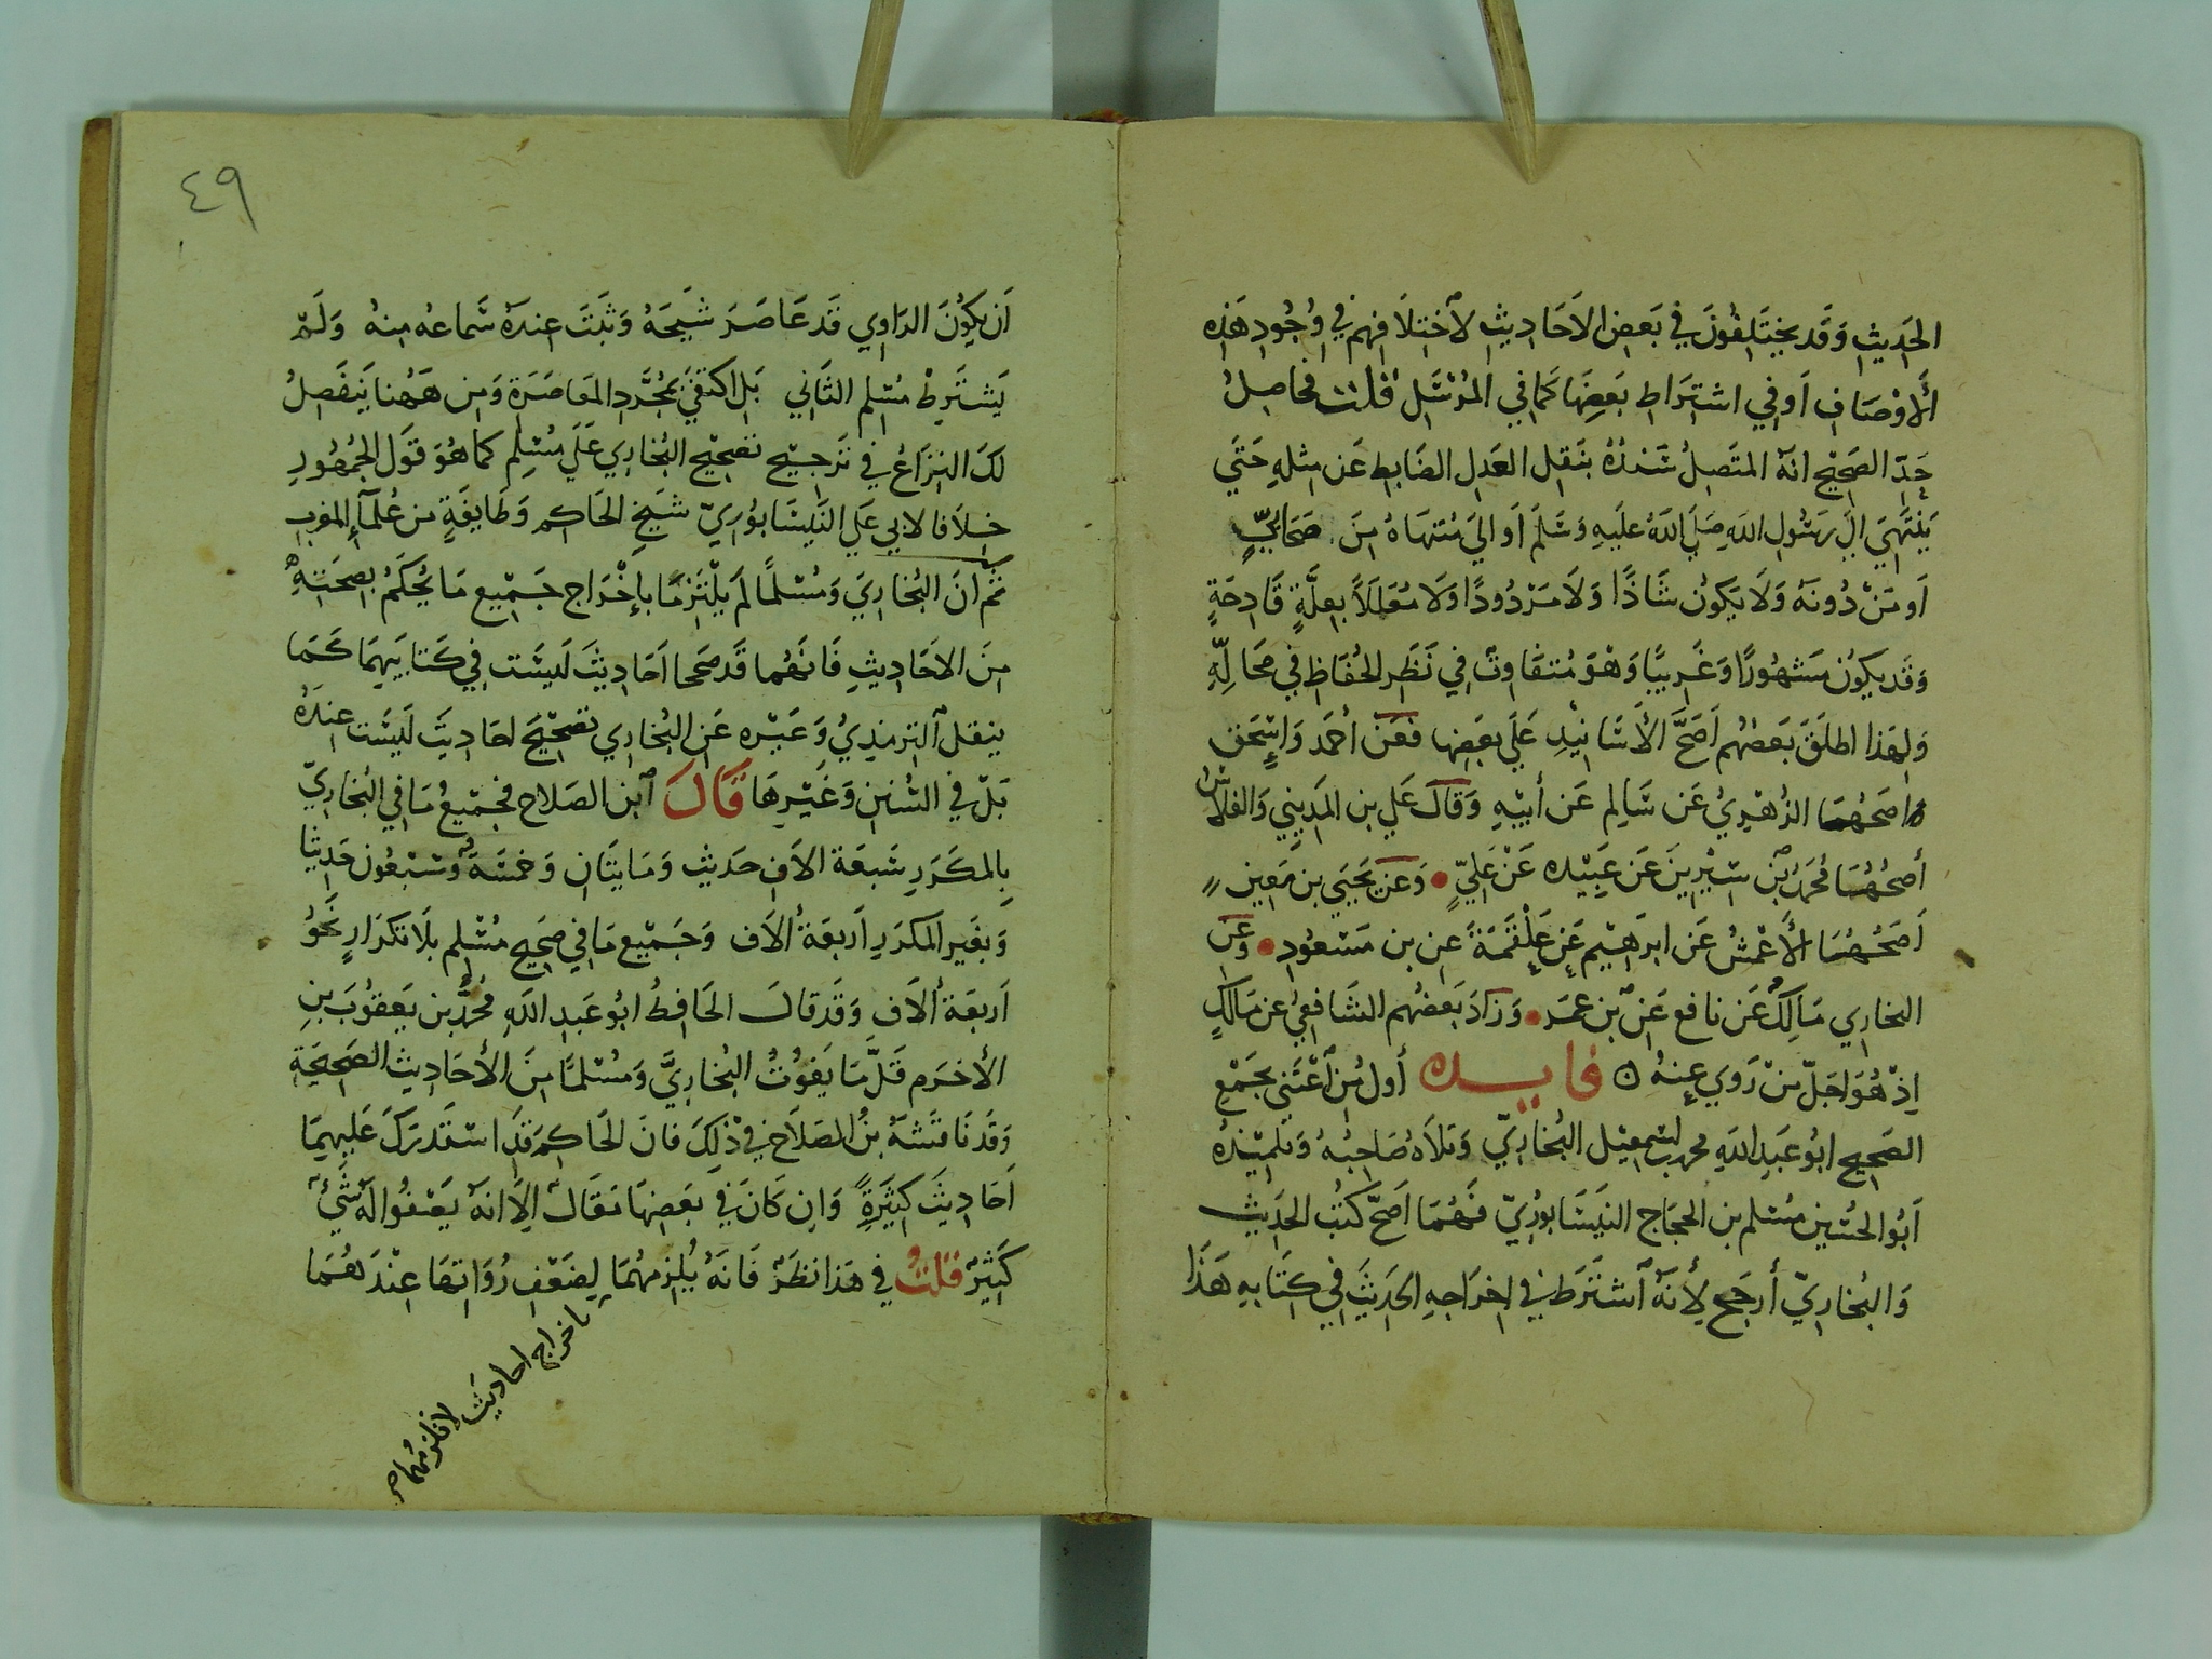 الحَدِيثِ وَقَد يختَلِفُونَ في بَعضِ الاَحَادِيثِ لاختِلاَفِهم في وُجُودِ هَذِهِ
الأَوْصَافِ اَو في اشتِرَاطِ بَعضِهَا كَما في المُرْسَلِ قُلْتُ فحَاصِلُ
حَدِّ الصَحِيْحِ انهُ المتَصِلُ سَنَدُهُ بنَقلِ العَدلِ الضَابِطِ عَن مثلِهِ حَتَي
يَنْتَهِيَ الَي رَسُولِ اللهِ صَلَي اللهُ علَيهِ وَسَلَم اَو اليَ مُنتَهَاهُ مِنَ صَحَابيٍّ
اَو مَنْ دُونَهُ وَلَا يَكونُ شَاذًا وَلَا مَرْدُودًا وَلَا مُعَلَلاً بعِلَّةٍ قَادِحَةٍ
وَقَد يكوُن مَشهُورًا وَغَرِيبًا وَهْوَ مُتفَاوِتٌ في نَظَرِ الحُفَاظِ في مَحَالِّهِ
وَلِهَذا اطلَقَ بَعضُهُم اَصَحَّ الاَسَانِيْدِ عَلَي بعَضِها فعَن أحمَد وَاسْحَق
اصَحُهَا الزُهْرِيُ عَن سَالِم عَن أبيْهِ وَقَالَ عَلي بن المَدِينِي وَالفلاسُ
أصحُهُا محُمَدُ بن سِيْرِينَ عَن عَبِيْدَه عَنْ عَلِيٍّ • وَعَن يَحيَي بن مَعِين
اَصَحُهَا الأَعْمَشُ عَن ابرَهِيم عَن عَلْقَمَةَ عن بن مَسعُودٍ • وَعَن
البخاري مَالِكٌ عَن نافع عَن بن عمَر • وَزَادَ بَعَضُهم الشَافِعي عن مَالكٍ
اِذْ هُوَ اجَلّ مَنْ رَوي عنهُ ٥ فايده أول مَن اَعْتَني بجَمْعِ
الصَحِيح ابُو عَبدِ اللهِ محمد بن اسْمعِيل البُخارِيّ وَتلاَهُ صَاحِبُهُ وَتلمِيْذُهُ
اَبُو الحُسَينِ مُسْلم بن الحجَاج النَيسَابُورُيّ فَهُمَا اَصَحّ كتُبِ الحَدِيث
وَالبُخارِيّ أرجَح لأنهُ اَشتَرَط في اخرَاجِهِ الحَدِيثَ في كتَابِهِ هَذَا
٤٩
اَن يَكوُنَ الرَاوِي قَد عَاصَرَ شيخَهُ وَثبَتَ عندَهُ سَماعُه مِنهُ وَلَمْ
يَشتَرِطْ مُسْلم الثَاني بَل اكتفَي بمُجَرَّدِ المعَاصَرَة وَمِن هَهُنا يَنفَصِلُ
لكَ النِزَاعُ في تَرجِيْح تصحِيْح البُخارِي عَلَي مُسْلِم كما هُوَ قَول الجُمهُورِ
خِلاَفا لابي عَلي النَيسَابُوُرِيّ شَيخِ الحَاكِم وَطَايفَةٍ من عُلمآءِ المغرب
ثم ان البُخارِيَ وَمُسْلمًا لَم يلْتَزِمَا بإخْرَاج جَمْيع مَا يُحكَمُ بصِحَتِهِ
مِنَ الاحَادِيثِ فَانهُما قَد صَححا اَحَادِيثَ لَيسَت في كتَابَيهِمَا كَمَا
ينقل الترمِذِيُ وَغَيْره عَن البُخارِي تصَحِيْحَ احَادِيثَ لَيسَت عِندَهُ
بَلْ في السُننِ وَغَيْرِهَا قَالَ ابن الصَلاح فجَمِيْعُ مَا في البُخارِيّ
بِالمكَرَرِ سَبعَة الاَفِ حَديث وَمَايتَانِ وَخمسَة وَسَبْعُون حَدِيثا
وَبغَيرِ المكرَرِ اَربعَة الاَف وَجَمْيع مَا في صَحِيح مُسْلم بلَا تكرَارٍ نَحَوُ
اَربعَة اُلاَف وَقَد قالَ الحَافِظُ ابُو عَبدِ اللهِ محُمَدُ بن يَعقُوبَ بنِ
الأخرَم قَلَّ مَا يَفوُتُ البُخارِيَّ وَمُسْلمًا مِنَ الأحَادِيث الصَحِيحَةِ
وَقَد نَاقَشهُ بنُ الصَلاَح في ذْلِكَ فانَ الحَاكِم قَد استَدرَكَ عَليهِمَا
اَحَادِيثَ كثيَرةً وَاِن كَانَ في بعَضِهَا مَقَالٌ اِلَا انهُ يَصْفُوا لَهُ شَيْءٌ
كَثيْرٌ قلتُ في هَذا نظَرٌ فَانهُ يُلزِمهُمَا لِضَعْفِ رُوَاتِهَا عِنْدَهُمَا
باخراج احاديث لا تلزمهما صح